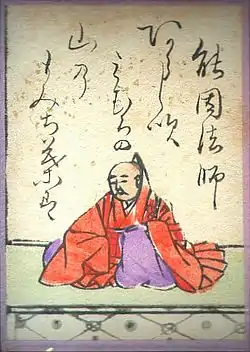 能因法師
あらし吹
三むろの
山乃
もみち葉は